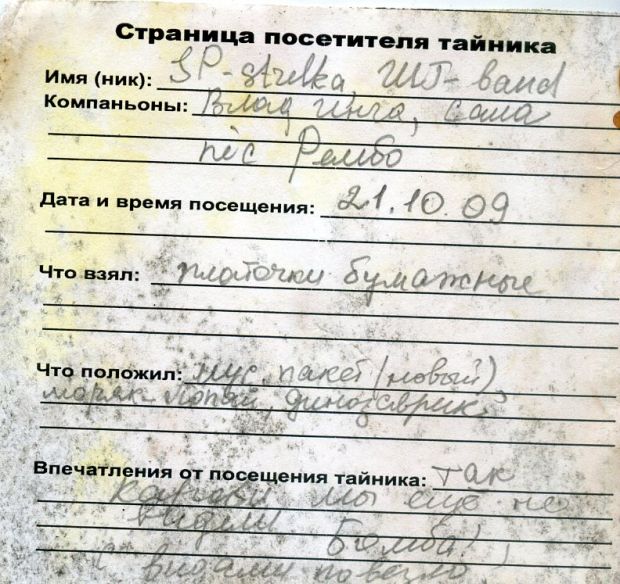 Страница посетителя тайника
Имя (ник): SP-strelka, ШТ-band
Компаньоны: Влад, Инга, Саша
пёс Рембо
Дата и время посещения: 21.10.09
Что взял: платочки бумажные
Что положил: мус. пакет (новый),
моряк-Попай, динозаврик.
Впечатления от посещения тайника: так
мы ещё не
видели Бомба!
С видами повезло